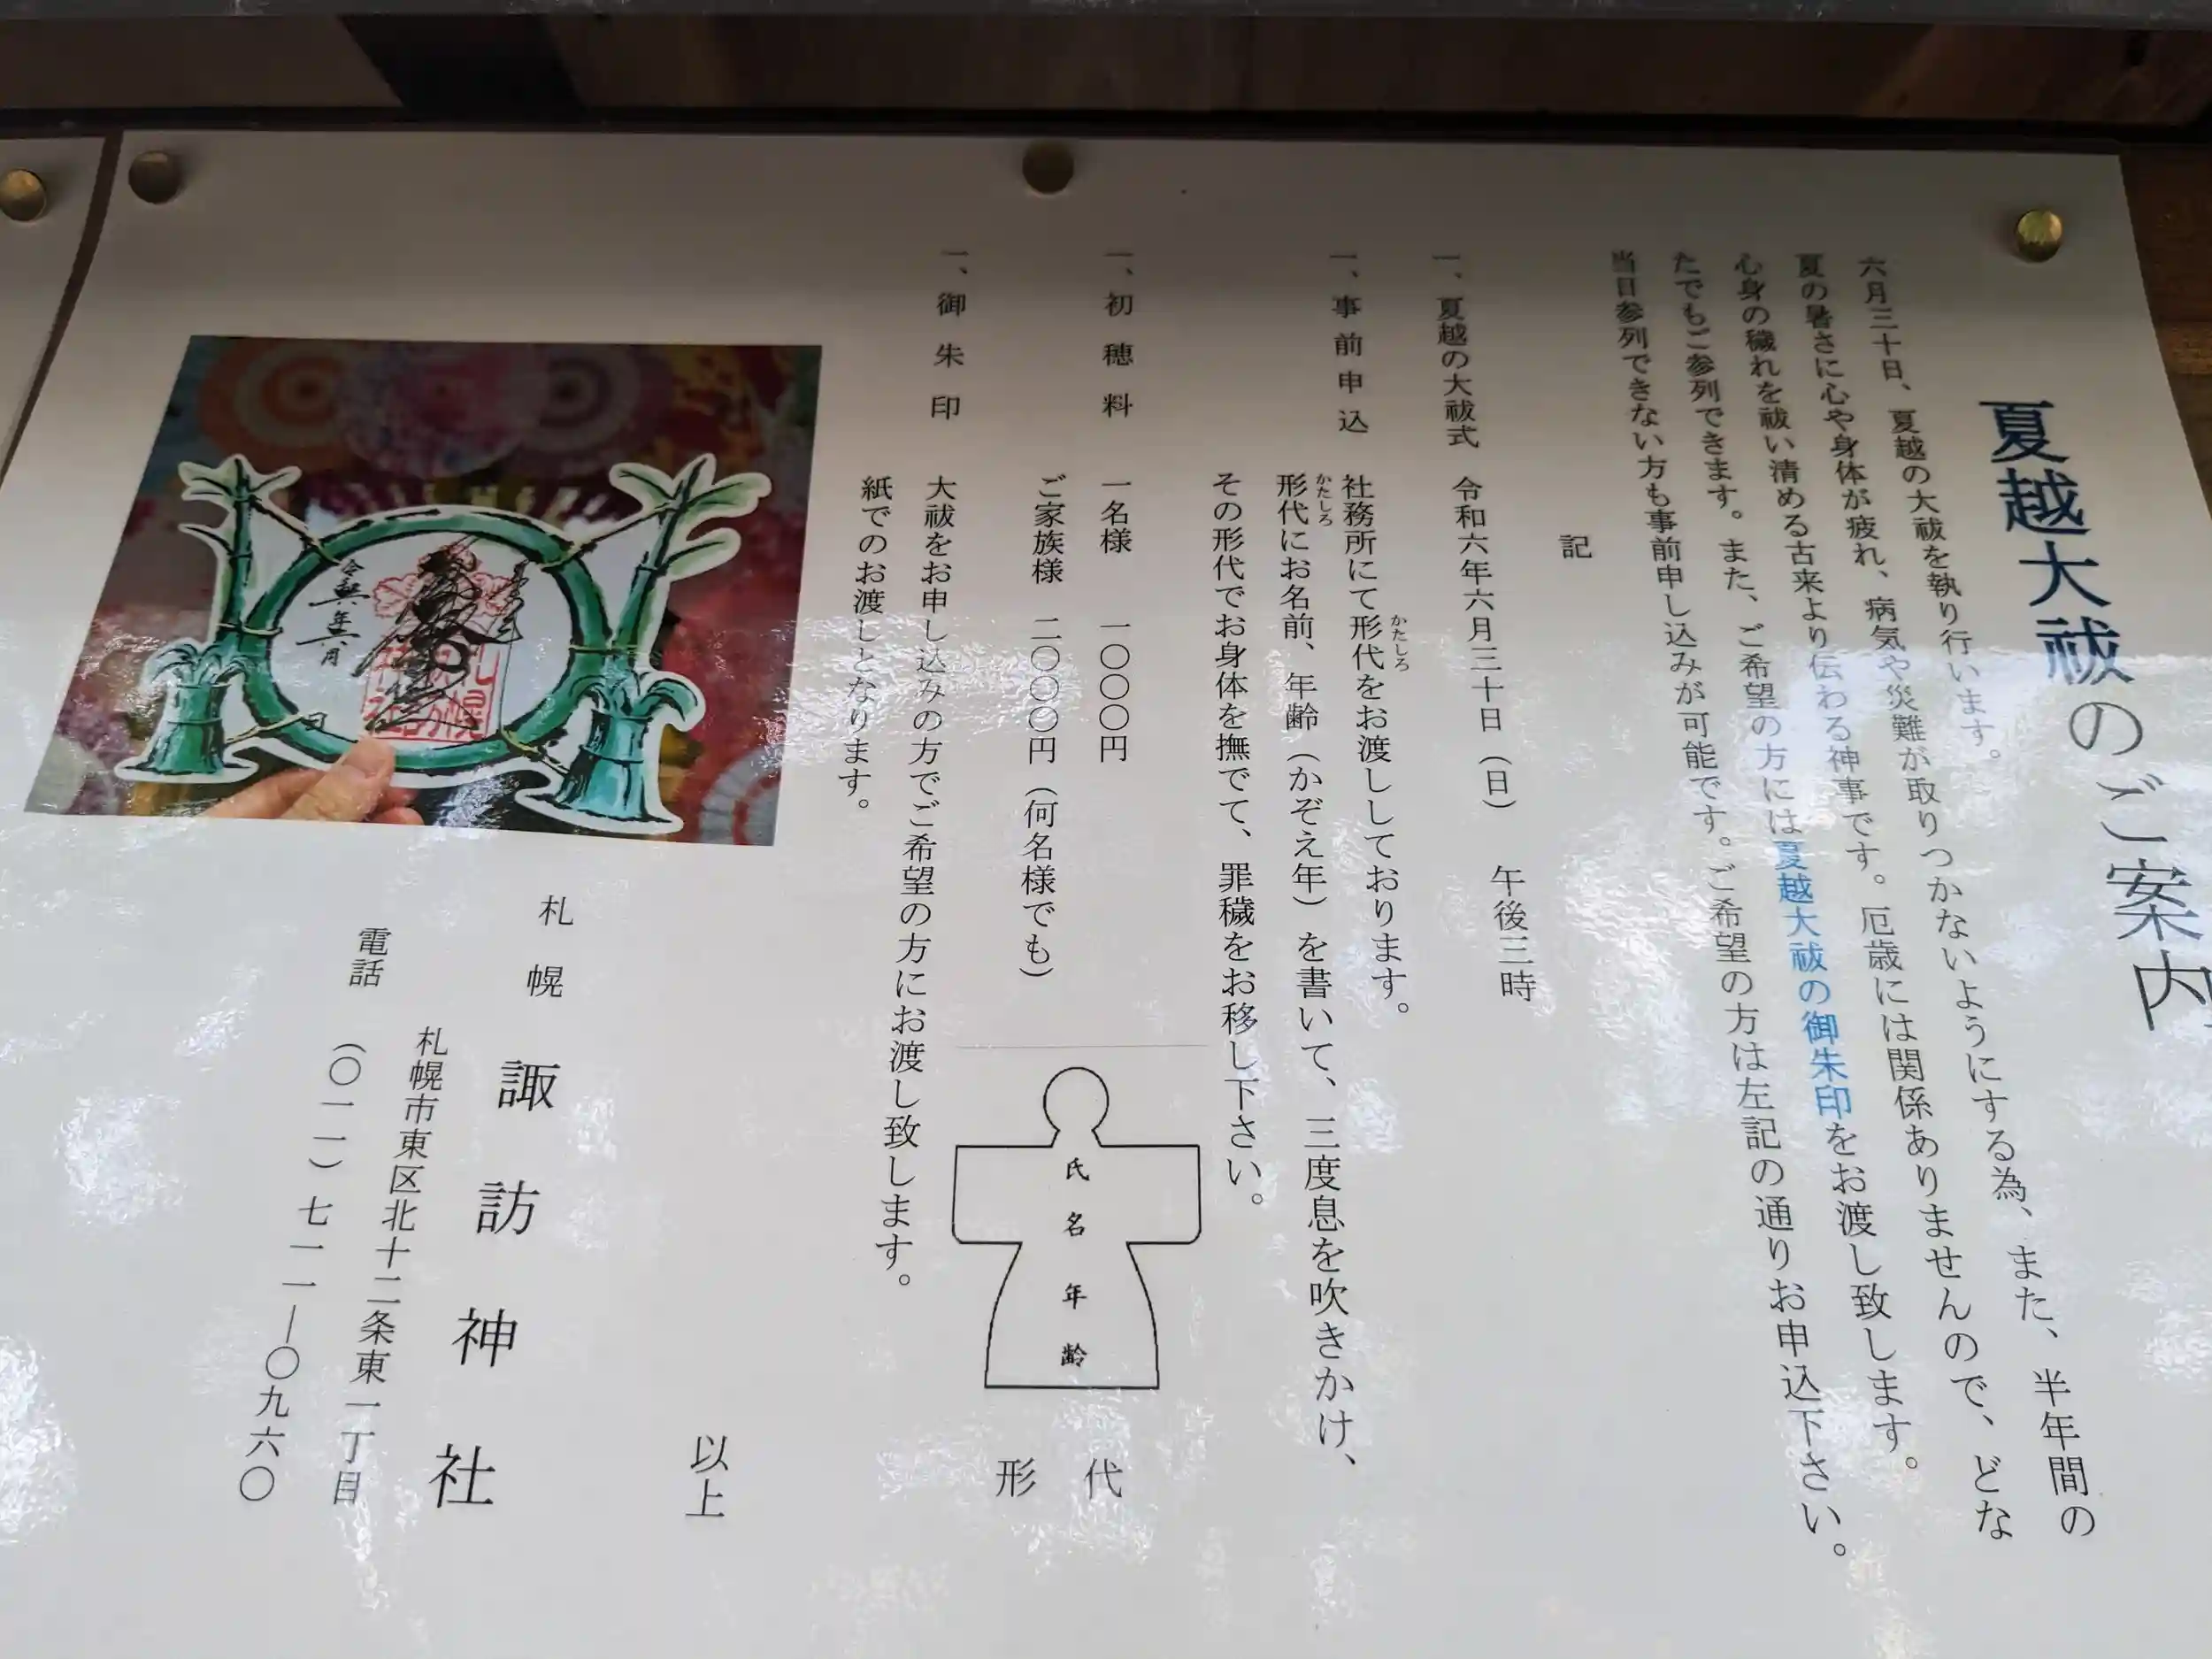 夏越大祓のご案内
六月三十日、夏越の大祓を執り行います。
夏の暑さに心や身体が疲れ、病気や災難が取りつかないようにする為、また、半年間の
心身の穢れを祓い清める古来より伝わる神事です。厄歳には関係ありませんので、どな
たでもご参列できます。また、ご希望の方には夏越大祓の御朱印をお渡し致します。
当日参列できない方も事前申し込みが可能です。ご希望の方は左記の通りお申込下さい。
記
一、夏越の大祓式 令和六年六月三十日（日） 午後三時
一、事前申込 社務所にて形代をお渡ししております。
かたしろ
形代にお名前、年齢（かぞえ年）を書いて、三度息を吹きかけ、
かたしろ
その形代でお身体を撫でて、罪穢をお移し下さい。
一、初穂料 一名様 一〇〇〇円
ご家族様 二〇〇〇円（何名様でも）
氏名年齢
形代
一、御朱印 大祓をお申し込みの方でご希望の方にお渡し致します。
紙でのお渡しとなります。
令和六年六月
日
以上
札幌 諏訪神社
札幌市東区北十二条東一丁目
電話 （〇一一）七一一―〇九六〇